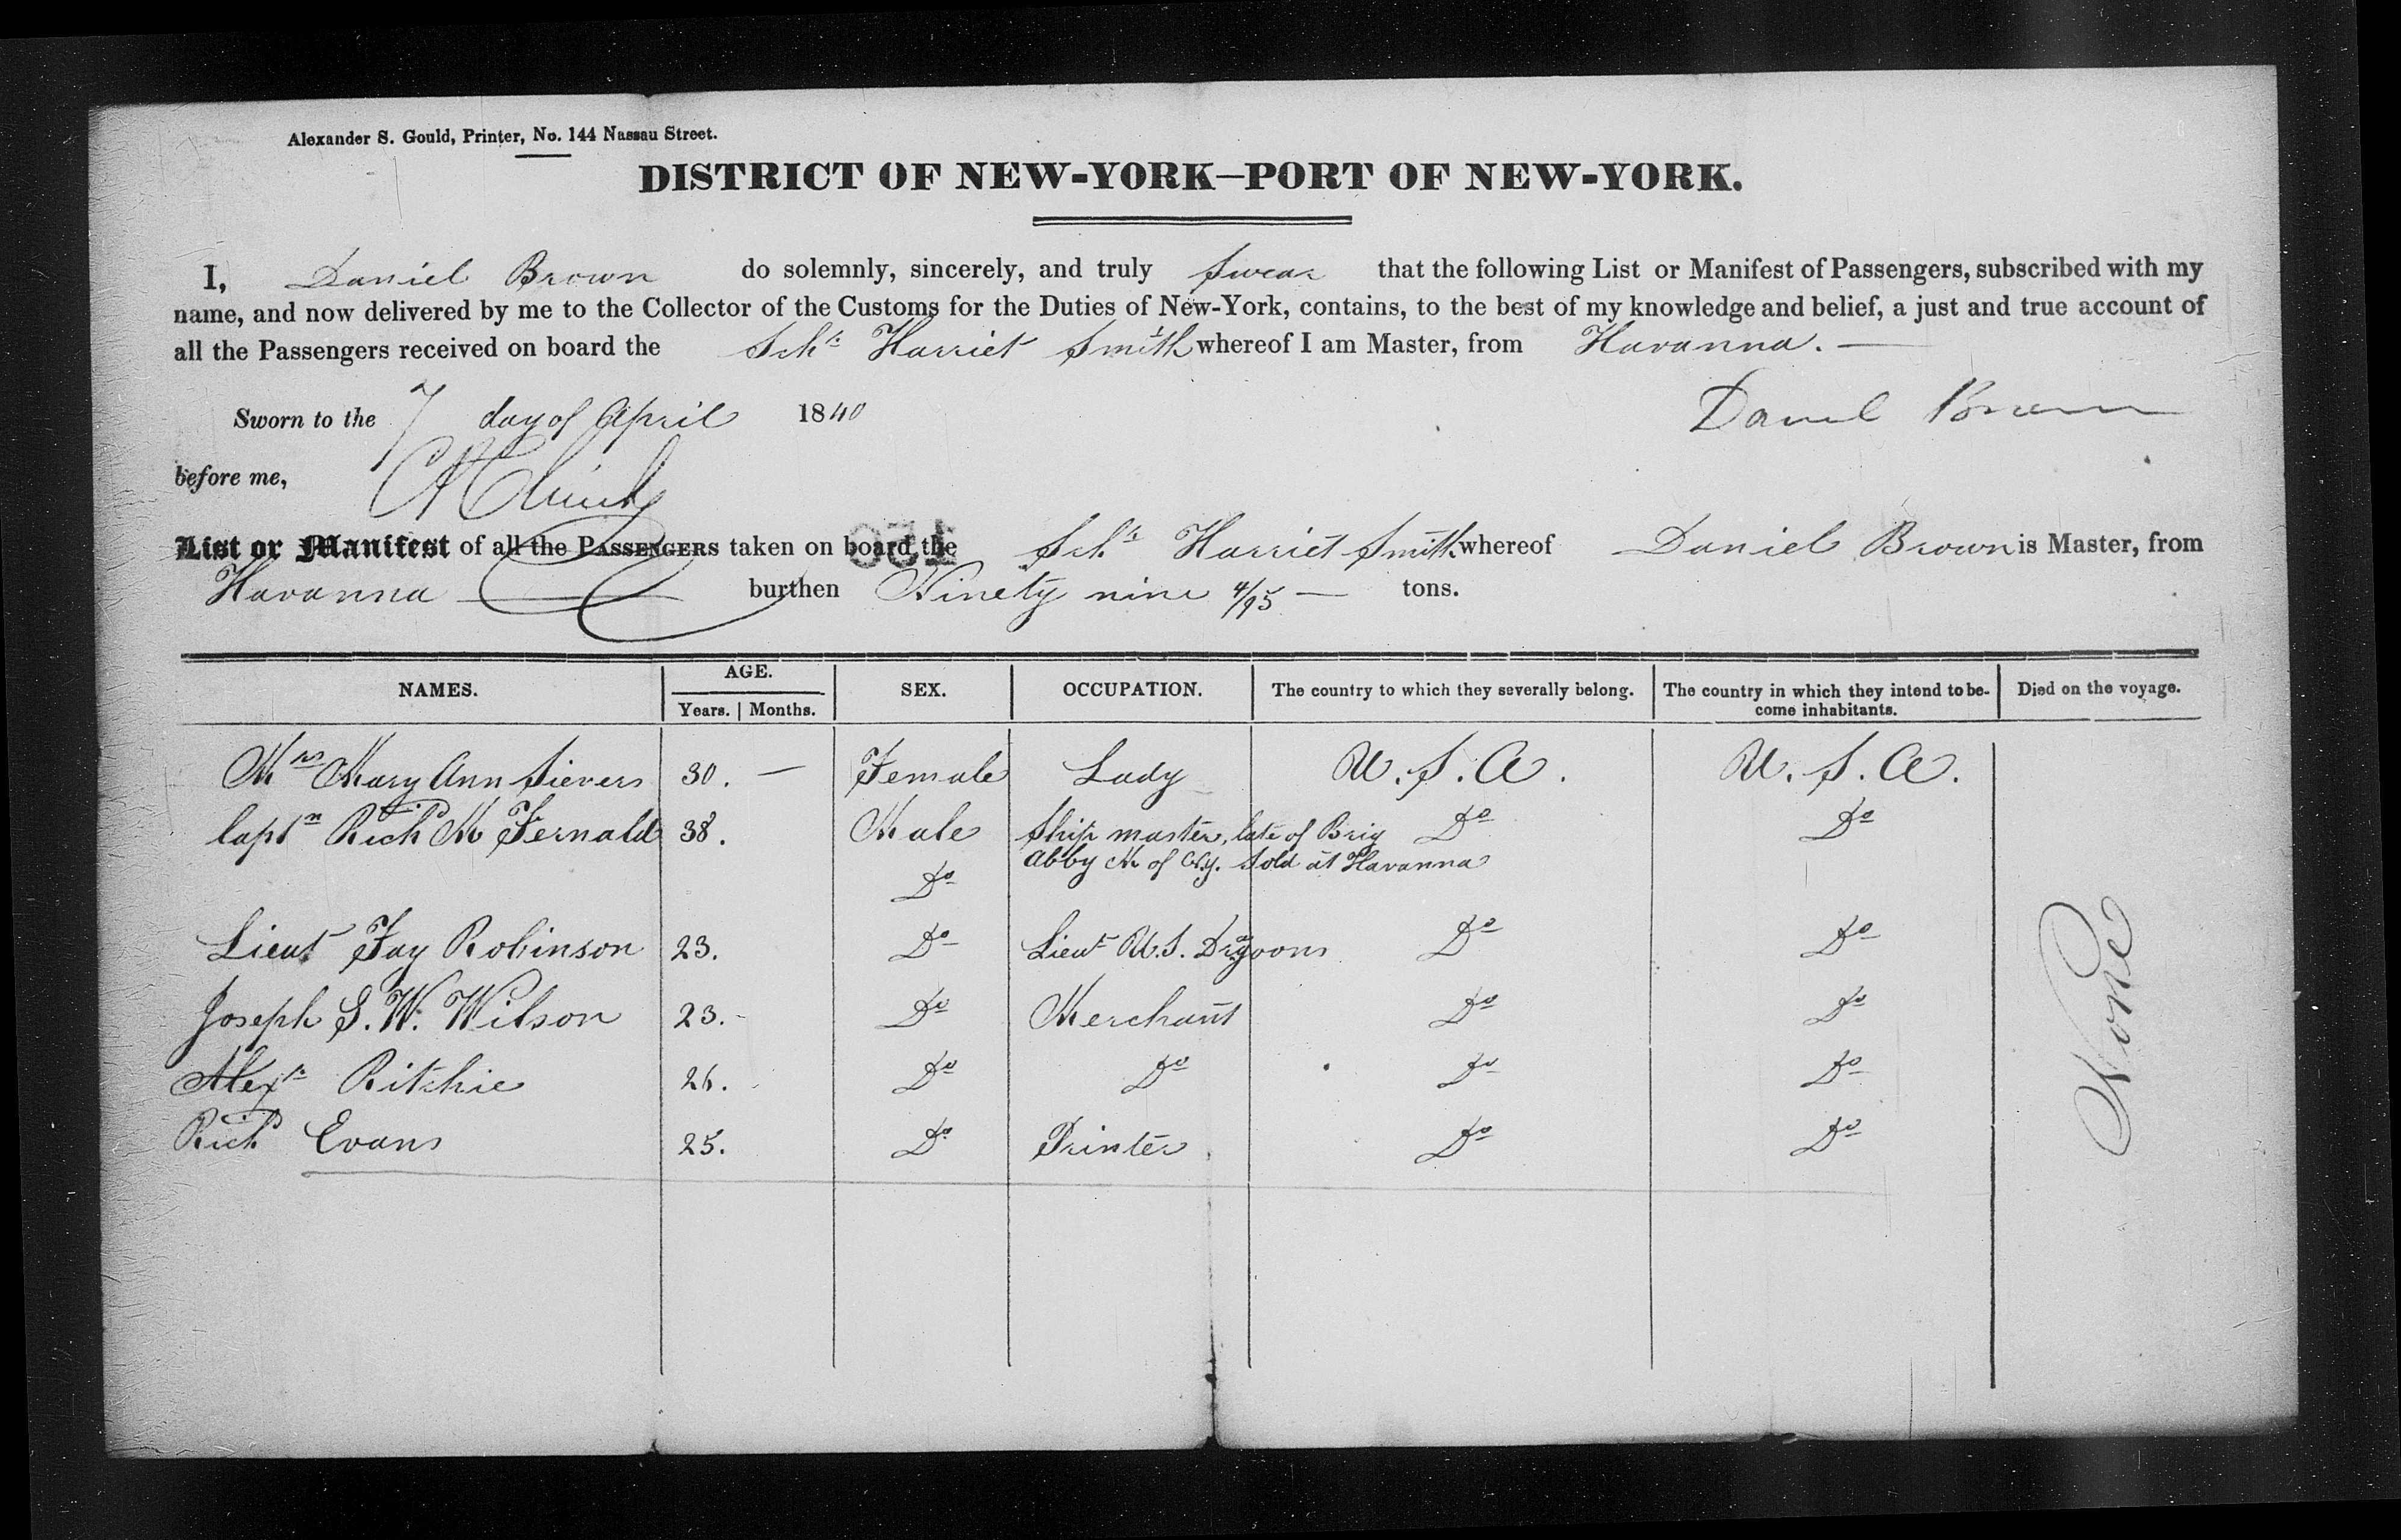 Alexander S. Gould, Printer, No. 144 Nassau Street.
DISTRICT OF NEW-YORK—PORT OF NEW-YORK.
I, Daniel Brown do solemnly, sincerely, and truly swear that the following List or Manifest of Passengers, subscribed with my
name, and now delivered by me to the Collector of the Customs for the Duties of New-York, contains, to the best of my knowledge and belief, a just and true account of
all the Passengers received on board the Schr Harriet Smith whereof I am Master, from Havanna. —
Sworn to the 7 day of April 1840 Daniel Brown
before me,
List or Manifest of all the PASSENGERS taken on board the Schr Harriet Smith whereof Daniel Brown is Master, from
Havanna — burthen Ninety nine 4/95 — tons.
NAMES. AGE. Years. Months. SEX. OCCUPATION. The country to which they severally belong. The country in which they intend to become inhabitants. Died on the voyage.
Mrs Mary Ann Sievers 30. — Female Lady U.S.A. U.S.A.
Captn Richd M Fernald 38. Male Ship master, late of Brig Do Do
Abby M of N.Y. sold at Havanna
Do
Lieut Fay Robinson 23. Do Lieut U.S. Dragoons Do Do
Joseph S. W. Wilson 23. Do Merchant Do Do
Alexr Ritchie 26. Do Do Do Do
Richd Evans 25. Do Printer Do Do
None